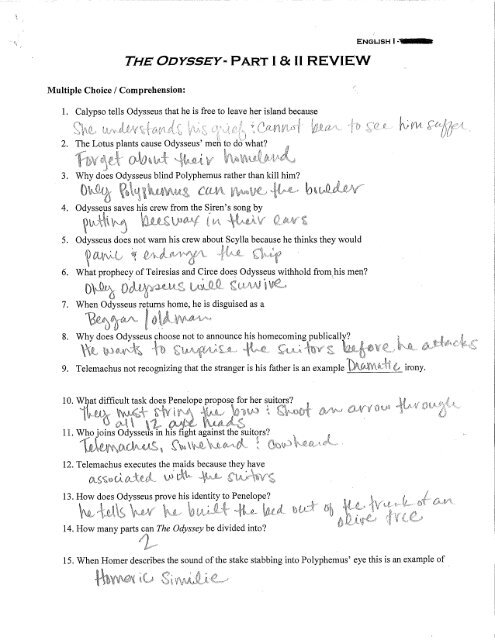 ENGLISH I -
THE ODYSSEY - PART I & II REVIEW
Multiple Choice / Comprehension:
1. Calypso tells Odysseus that he is free to leave her island because
She understands his grief & cannot bear to see him suffer.
2. The Lotus plants cause Odysseus' men to do what?
Forget about their homeland
3. Why does Odysseus blind Polyphemus rather than kill him?
Only Polyphemus can move the boulder
4. Odysseus saves his crew from the Siren's song by
putting beeswax in their ears
5. Odysseus does not warn his crew about Scylla because he thinks they would
panic & endanger the ship
6. What prophecy of Teiresias and Circe does Odysseus withhold from his men?
Only Odysseus will survive
7. When Odysseus returns home, he is disguised as a
Beggar / old man
8. Why does Odysseus choose not to announce his homecoming publically?
He wants to surprise the suitors before he attacks
9. Telemachus not recognizing that the stranger is his father is an example Dramatic irony.
10. What difficult task does Penelope propose for her suitors?
They must string the bow & shoot an arrow through
all 12 axe heads
11. Who joins Odysseus in his fight against the suitors?
Telemachus, Swineheard & Cowheard.
12. Telemachus executes the maids because they have
associated with the suitors
13. How does Odysseus prove his identity to Penelope?
he tells her he built the bed out of the trunk of an
olive tree
14. How many parts can The Odyssey be divided into?
2
15. When Homer describes the sound of the stake stabbing into Polyphemus' eye this is an example of
Homeric Similie